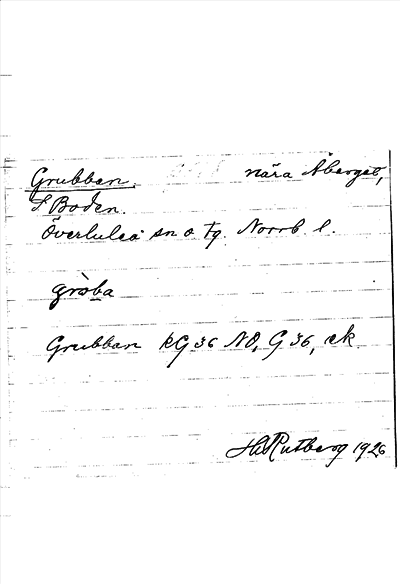 Grubban. nära Åberget,
S Boden.
Överluleå sn o tg. Norrb. l.
gròba
Grubban kG 36 NO, G 36, ek
H. Rutberg 1926